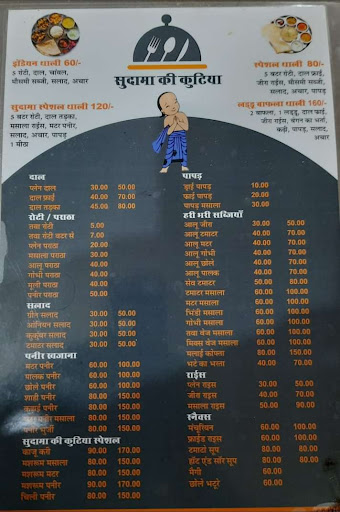 इंडियन थाली 60/-
5 रोटी, दाल, चांवल,
मौसमी सब्जी, सलाद, अचार
सुदामा स्पेशल थाली 120/-
5 बटर रोटी, दाल तड़का,
मसाला राईस, मटर पनीर,
सलाद, अचार, पापड़
1 मीठा
सुदामा की कुटिया
स्पेशल थाली 80/-
5 बटर रोटी, दाल फ्राई,
जीरा राईस, मौसमी सब्जी,
सलाद, पापड़
लड्डू बाफला थाली 160/-
2 बाफला, 1 लड्डू, दाल फ्राई,
जीरा राईस, बेंगन का भर्ता,
कढ़ी, पापड़, सलाद,
अचार
दाल
प्लेन दाल 30.00 50.00
दाल फ्राई 40.00 70.00
दाल तड़का 45.00 80.00
रोटी / पराठा
तवा रोटी 5.00
तवा रोटी बटर से 7.00
प्लेन पराठा 20.00
मसाला पराठा 30.00
आलू पराठा 40.00
गोभी पराठा 40.00
मूली पराठा 40.00
पनीर पराठा 50.00
सलाद
ग्रीन सलाद 30.00 50.00
आनियन सलाद 30.00 50.00
कुकुंम्बर सलाद 30.00 50.00
टमाटर सलाद 30.00 50.00
पनीर खजाना
मटर पनीर 60.00 100.00
पालक पनीर 60.00 100.00
छोले पनीर 60.00 100.00
शाही पनीर 80.00 150.00
कड़ाई पनीर 80.00 150.00
पनीर मसाला 80.00 150.00
पनीर भुर्जी 80.00 150.00
सुदामा की कुटिया स्पेशल
काजू करी 90.00 170.00
मशरूम मसाला 80.00 150.00
मशरूम मटर 80.00 150.00
मशरूम पनीर 90.00 170.00
चिली पनीर 80.00 150.00
पापड़
ड्राई पापड़ 10.00
फ्राई पापड़ 20.00
पापड़ मसाला 30.00
हरी भरी सब्जियाँ
आलू जीरा 30.00 50.00
आलू टमाटर 40.00 70.00
आलू मटर 40.00 70.00
आलू गोभी 40.00 70.00
आलू छोले 40.00 70.00
आलू पालक 40.00 70.00
सेव टमाटर 50.00 80.00
टमाटर मसाला 60.00 100.00
मटर मसाला 60.00 100.00
भिंडी मसाला 60.00 100.00
गोभी मसाला 60.00 100.00
तवा वेज मसाला 60.00 100.00
मिक्स वेज मसाला 60.00 100.00
मलाई कोफ्ता 80.00 150.00
भटे का भर्ता 40.00 70.00
राईस
प्लेन राइस 30.00 50.00
जीरा राइस 40.00 70.00
मसाला राइस 50.00 90.00
स्नैक्स
मंचूरियन 60.00 100.00
फ्राईड राइस 60.00 100.00
टमाटो सूप 80.00 80.00
हॉट एंड सॉर सूप 80.00 80.00
मैगी 60.00
छोले भटूरे 60.00